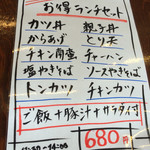 お得ランチセット
カツ丼 親子丼
からあげ とり天
チキン南蛮 チャーハン
塩やきそば ソースやきそば
トンカツ チキンカツ
ご飯+豚汁+サラダ付
680円